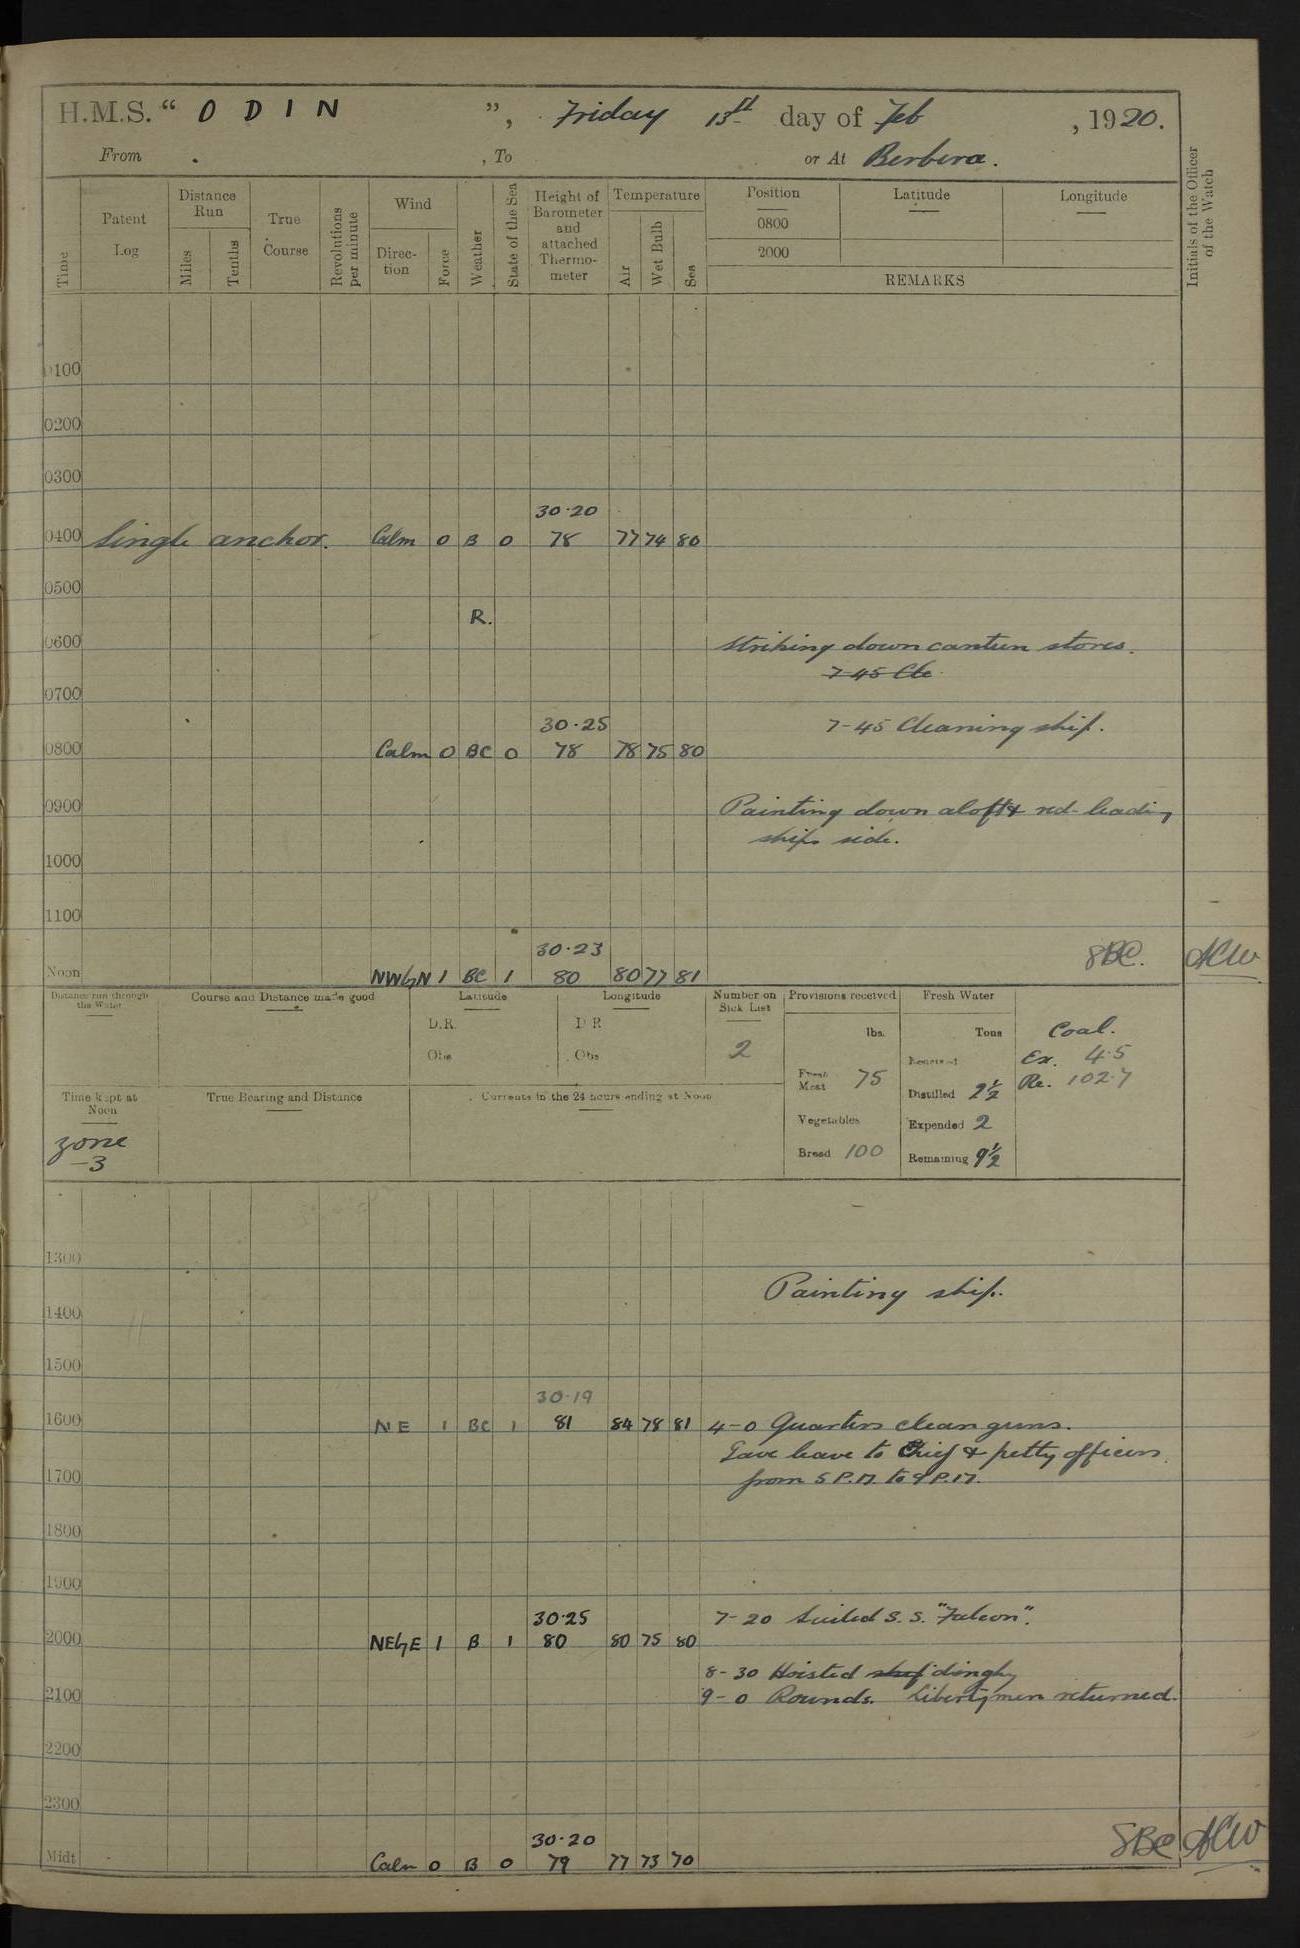 H.M.S. “ O D I N ”, Friday 13th day of Feb , 1920.
From , To or At Berbera.
Time
Patent Log
Distance Run
Miles
Tenths
True Course
Revolutions per minute
Wind
Direction
Force
Weather
State of the Sea
Height of Barometer and attached Thermometer
Temperature
Air
Wet Bulb
Sea
Position
0800
2000
Latitude
Longitude
REMARKS
Initials of the Officer of the Watch
0100
0200
0300
30·20
0400 Single anchor. Calm 0 B 0 78 77 74 80
0500
R.
0600 Striking down canteen stores.
7-45 Cle
0700
30·25 7-45 Cleaning ship.
0800 Calm 0 BC 0 78 78 75 80
0900 Painting down aloft & red-leading
ships side.
1000
1100
30·23 SBC. ACW
Noon NWbyN 1 BC 1 80 80 77 81
Distance run through the Water
Course and Distance made good
Latitude
D.R.
Obs
Longitude
D R
Obs
Number on Sick List
2
Provisions received
lbs.
Fresh Meat 75
Vegetables
Bread 100
Fresh Water
Tons
Received
Distilled 2½
Expended 2
Remaining 9½
Coal.
Ex. 4·5
Re. 102·7
Time kept at Noon
zone
-3
True Bearing and Distance
Currents in the 24 hours ending at Noon
1300
Painting ship.
1400
1500
30·19
1600 NE 1 BC 1 81 84 78 81 4-0 Quarters clean guns.
Gave leave to Chief & petty officers
1700 from 5 P.M. to 9 P.M.
1800
1900
30·25 7-20 Sailed S.S. "Falcon".
2000 NEbyE 1 B 1 80 80 75 80
8-30 Hoisted skif dinghy
2100 9-0 Rounds. Libertymen returned.
2200
2300
30·20 SBC ACW
Midt Calm 0 B 0 79 77 73 70